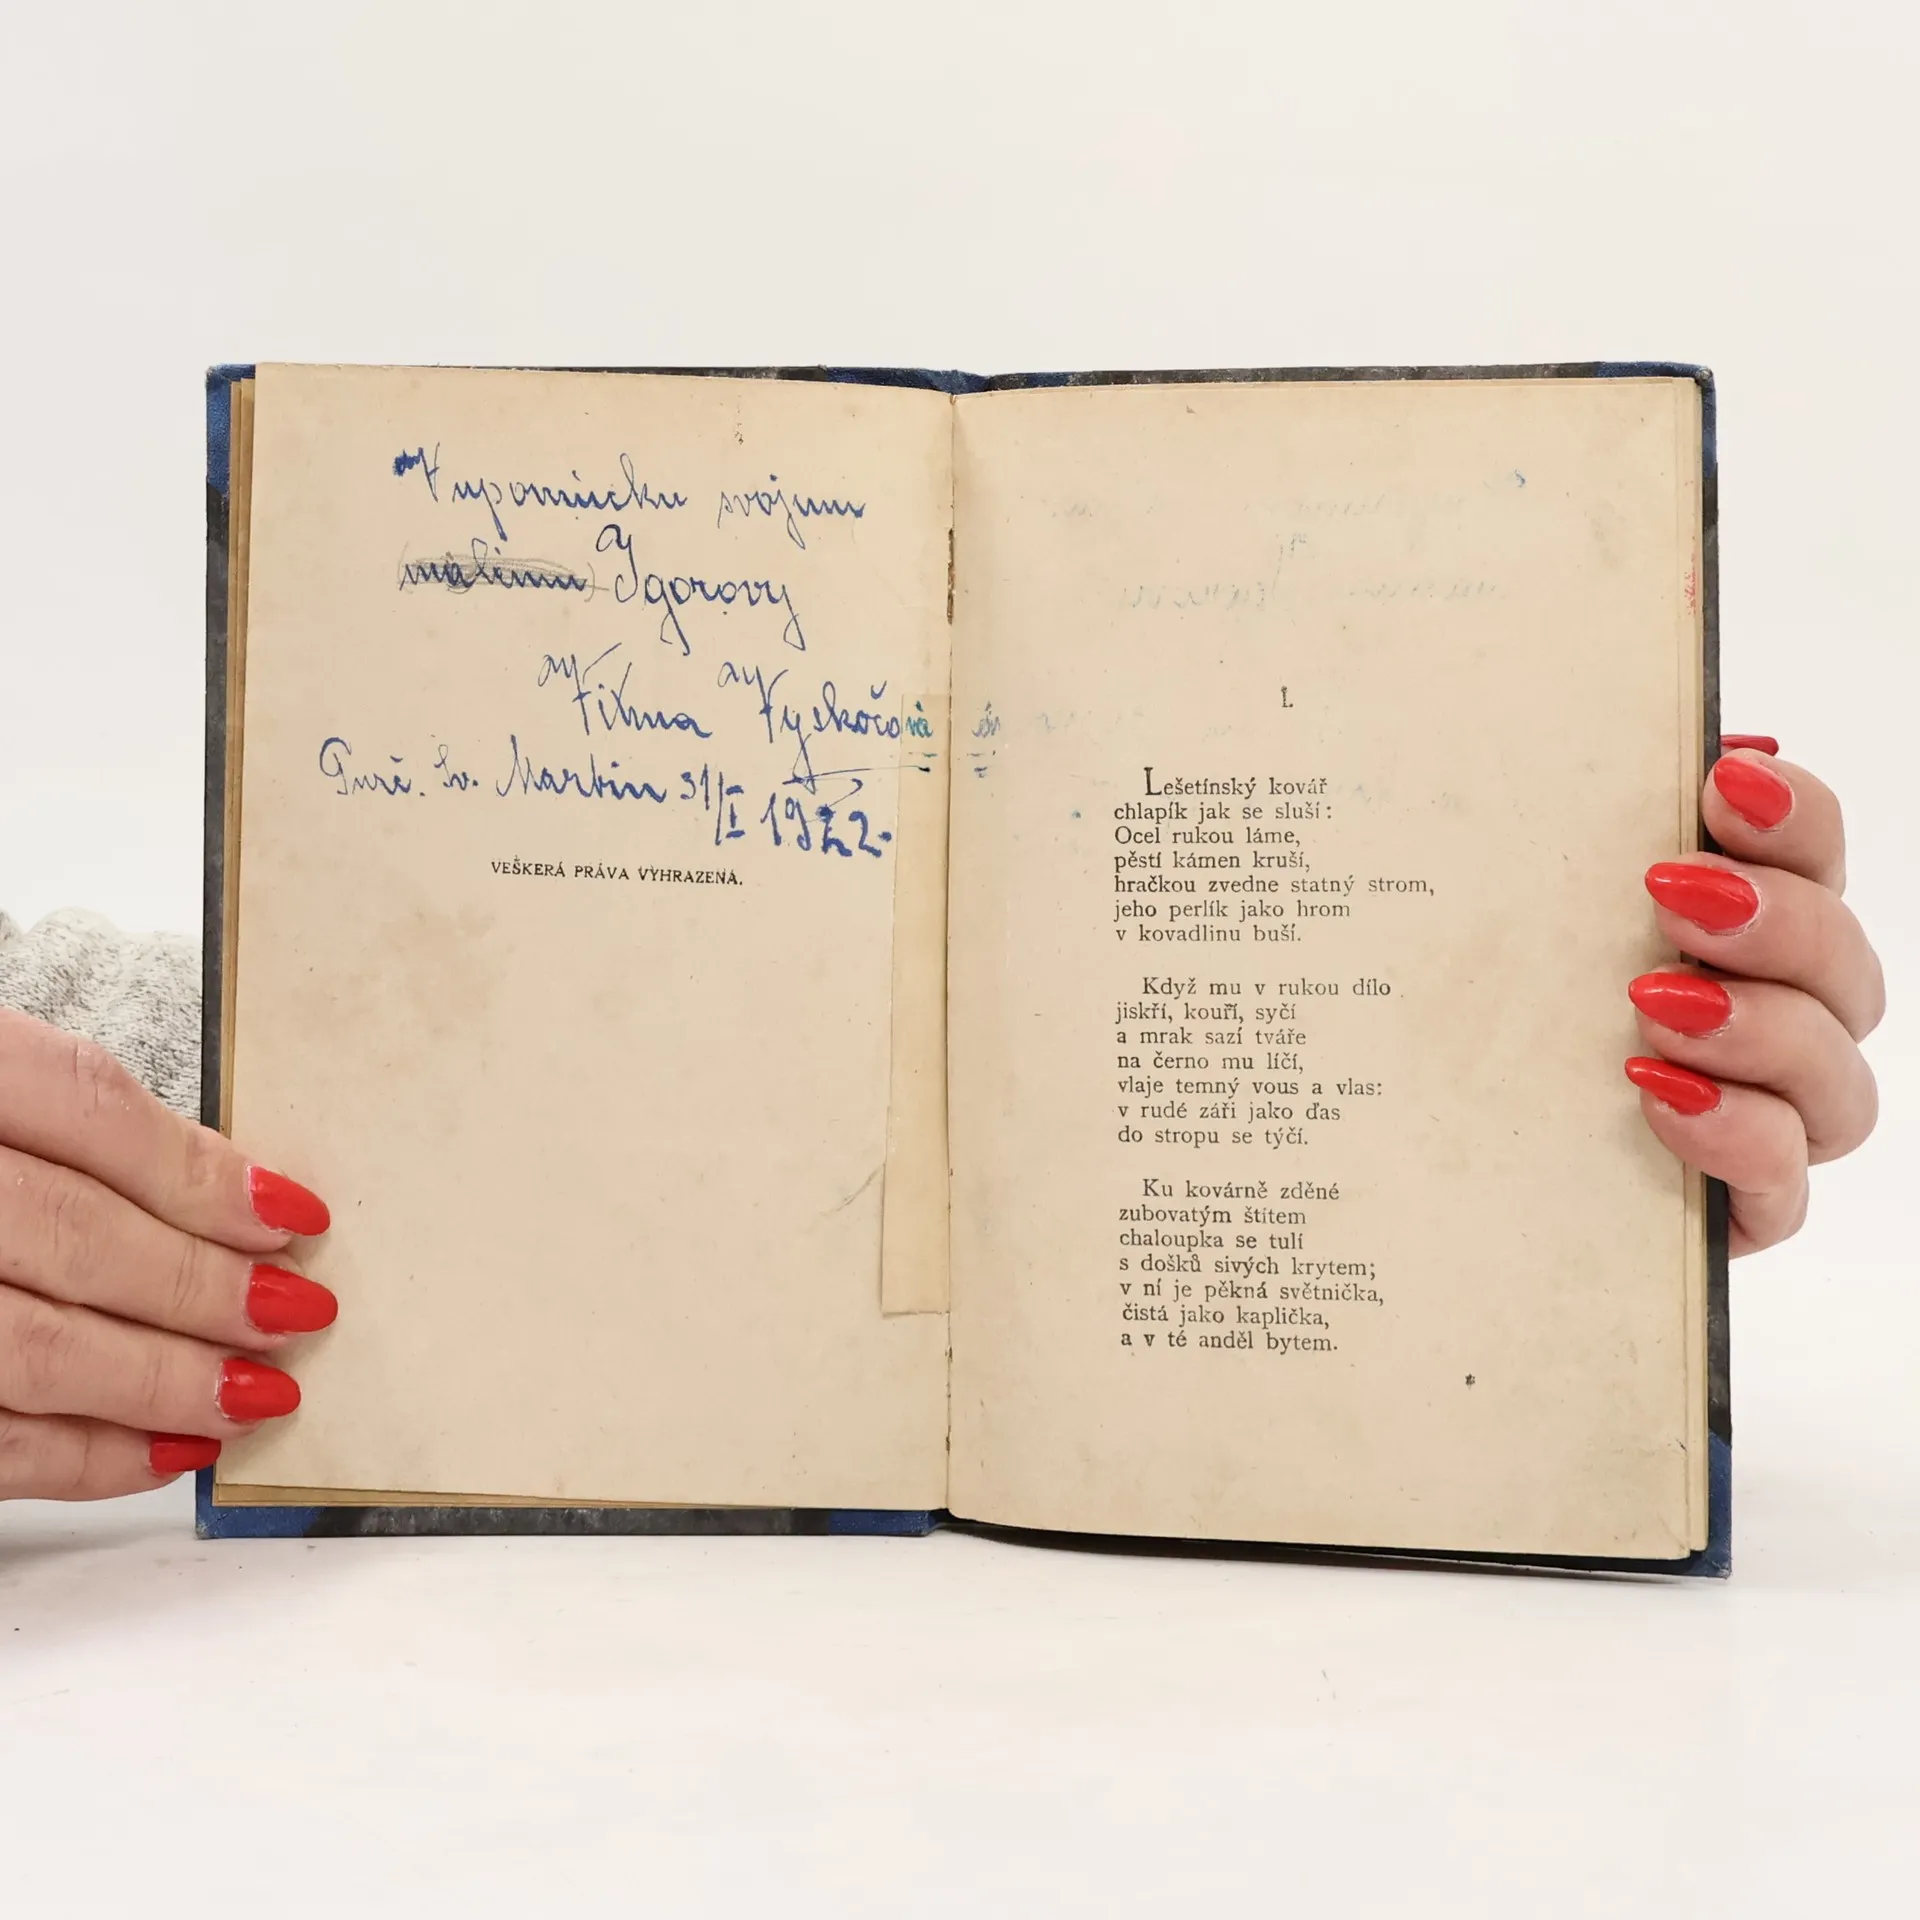 V upomínku svojmu
malému Igorovy
Vilma Vyskočová
Turč. Sv. Martin 31/I 1922.
VEŠKERÁ PRÁVA VYHRAZENA.
I.
Lešetínský kovář
chlapík jak se sluší:
Ocel rukou láme,
pěstí kámen kruší,
hračkou zvedne statný strom,
jeho perlík jako hrom
v kovadlinu buší.
Když mu v rukou dílo
jiskří, kouří, syčí
a mrak sazí tváře
na černo mu líčí,
vlaje temný vous a vlas:
v rudé záři jako ďas
do stropu se týčí.
Ku kovárně zděné
zubovatým štítem
chaloupka se tulí
s došků sivých krytem;
v ní je pěkná světnička,
čistá jako kaplička,
a v té anděl bytem.
*